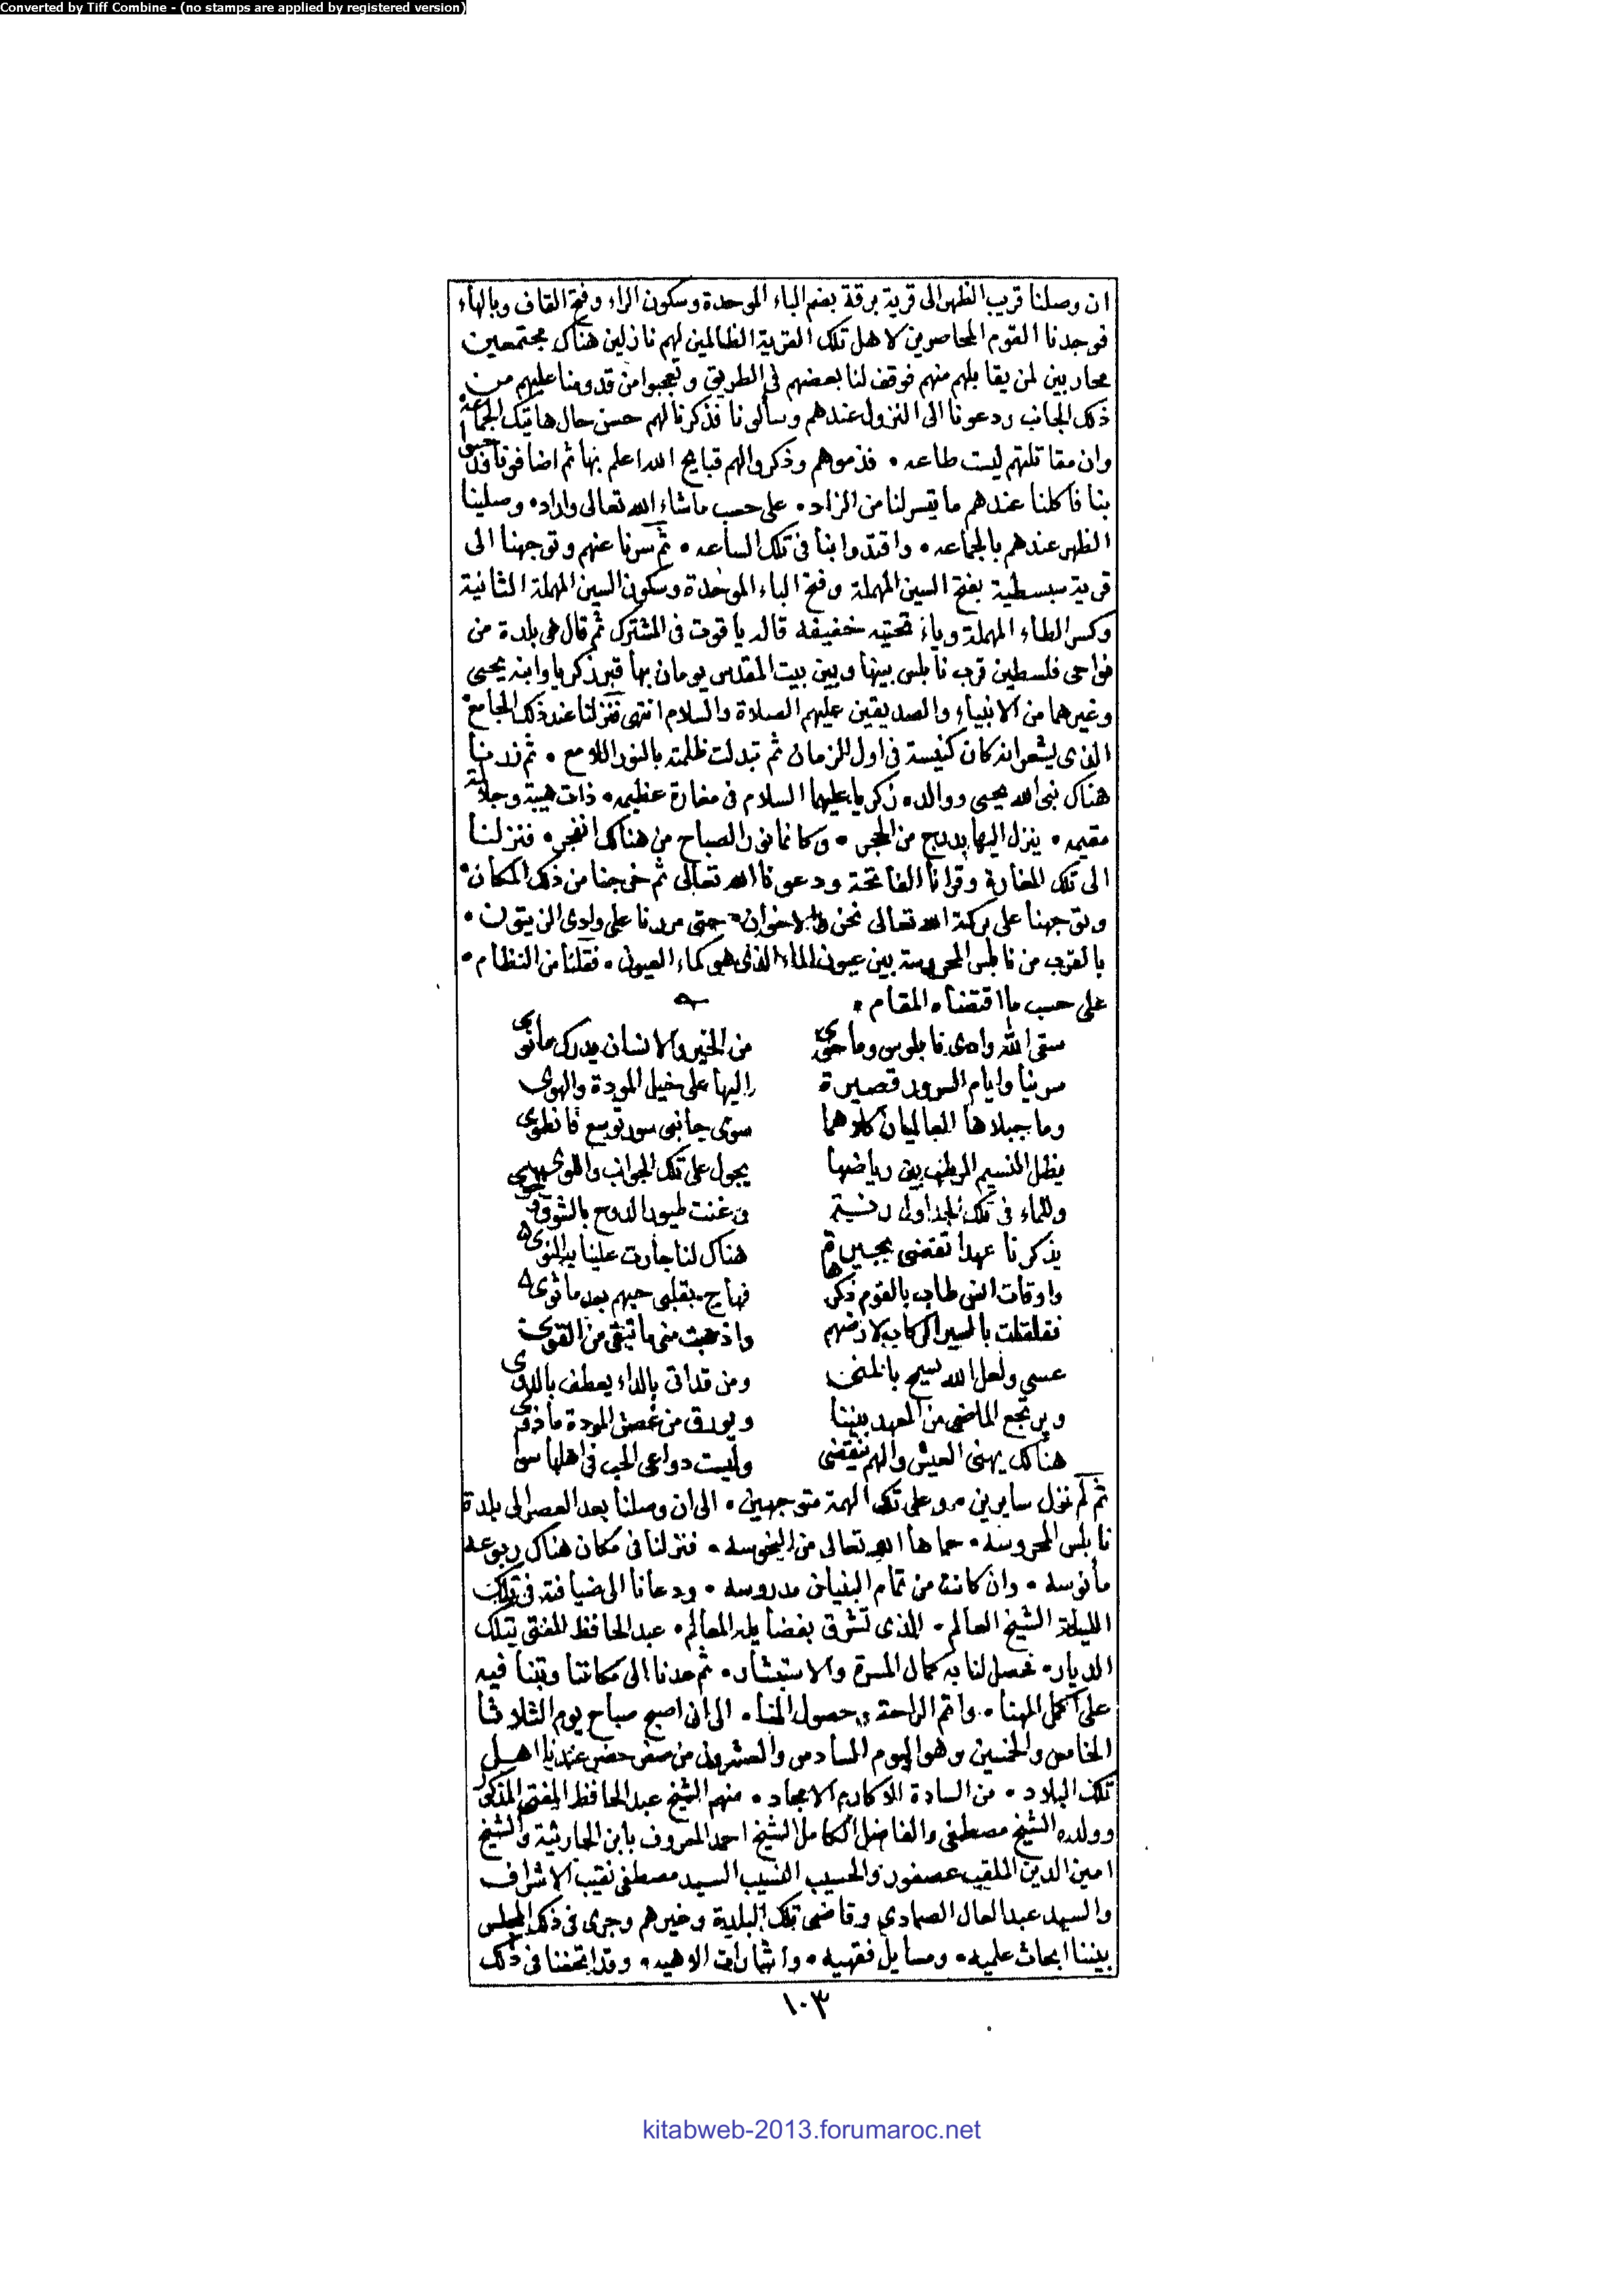 Converted by Tiff Combine - (no stamps are applied by registered version)
ان وصلنا قريب الظهر الى قرية برقة بضم الباء الموحدة وسكون الراء وفتح القاف وبالهاء
فوجدنا القوم المحاصرين لاهل تلك القرية الظالمين لهم نازلين هناك مجتمعين
محاربين لمن يقابلهم منهم فوقف لنا بعضهم في الطريق وتعجبوا من قدومنا عليهم من
ذلك الجانب ودعونا الى النزول عندهم وسألونا فذكرنا لهم حسن حال هاتيك الجماعة
وان مقاتلتهم ليست طاعه • فذموهم وذكروا لهم قبايح الله اعلم بها ثم اضافونا
بنا فاكلنا عندهم ما تيسر لنا من الزاد • على حسب ما شاء الله تعالى واراد • وصلينا
الظهر عندهم بالجماعه • واقتدوا بنا في تلك الساعه • ثم سرنا عنهم وتوجهنا الى
قرية سبسطية بفتح السين المهملة وفتح الباء الموحدة وسكون السين المهملة الثانية
وكسر الطاء المهملة وياء تحتيه خفيفه قاله ياقوت في المشترك ثم قال هي بلدة من
نواحى فلسطين قرب نابلس بينها وبين بيت المقدس يومان بها قبر زكريا وابنه يحيى
وغيرهما من الانبياء والصديقين عليهم الصلاة والسلام انتهى فنزلنا عند ذلك الجامع •
الذى يشعر انه كان كنيسة في اول الزمان ثم تبدلت ظلمته بالنور اللامع • ثم زرنا
هناك نبى الله يحيى ووالده زكريا عليهما السلام في مغارة عظيمه • ذات هيبة وجلالة
مقيمه • ينزل اليها بدرج من الحجر • وكانما نور الصباح من هناك انفجر • فنزلنا
الى تلك المغارة وقرانا الفاتحة ودعونا الله تعالى ثم خرجنا من ذلك المكان •
وتوجهنا على بركة الله تعالى نحن والاخوان • حتى مررنا على وادى الزيتون •
بالقرب من نابلس المحروسة بين عيون الماء الذى هو كماء العيون • فقلنا من النظام •
على حسب ما اقتضاه المقام •
سقى الله وادى نابلوس وما حوى من الخير والانسان يدرك ما نوى
سرينا وايام السرور قصيرة اليها على خيل المودة والهوى
وما جبلاها العاليان كلاهما سوى جانبى سور توسع فانطوى
يظل النسيم الرطب بين رياضها يجول على تلك الجوانب واللوى
وللماء في تلك الجداول رنة غنت طيور الدوح بالشوق
يذكرنا عهدا تقضى بجيرة هناك لنا جارت علينا يد النوى
واوقات انس طاب بالقوم ذكرها فهاج بقلبى حبهم بعد ما ثوى
فقلقلت بالسير الركاب لارضهم واذهبت منى ما تبقى من القوى
عسى ولعل الله يسمح بالمنى ومن قد اتى بالداء يعطف بالدوى
ويرتجع الماضى من العهد بيننا ويورق من غصن المودة ما ذوى
هنالك يهنى العيش والهم ينقضى وليست دواعى الحب في اهلها سوا
ثم لم نزل سايرين على تلك الهمة متوجهين • الى ان وصلنا بعد العصر الى بلدة
نابلس المحروسه • حماها الله تعالى من النحوسه • فنزلنا في مكان هناك ربوعه
مأنوسه • وان كانت من تمام البنيان مدروسه • ودعانا الى ضيافته في تلك
الليلة الشيخ العالم • الذى تشرق بفضايله المعالم • عبد الحافظ المفتى بتلك
الديار • فحصل لنا به كمال المسرة والاستبشار • ثم عدنا الى مكاننا وبتنا فيه
على اكمل الهنا • واتم الراحة وحصول المنا • الى ان اصبح صباح يوم الثلاثا
الخامس والخمسين وهو اليوم السادس والعشرون من صفر حضر عندنا اهل
تلك البلاد • من السادة الاكارم الامجاد • منهم الشيخ عبد الحافظ المفتى المذكور
وولده الشيخ مصطفى والفاضل الكامل الشيخ احمد المعروف بابن الحارثية والشيخ
امين الدين الملقب عصفور والحسيب النسيب السيد مصطفى نقيب الاشراف
والسيد عبد العال الصمادي وقاضى تلك البلدة وغيرهم وجرى في ذلك المجلس
بيننا ابحاث علميه • ومسايل فقهيه • واشارات الاهيه • وقد اتحفنا في ذلك
١٠٣
kitabweb-2013.forumaroc.net